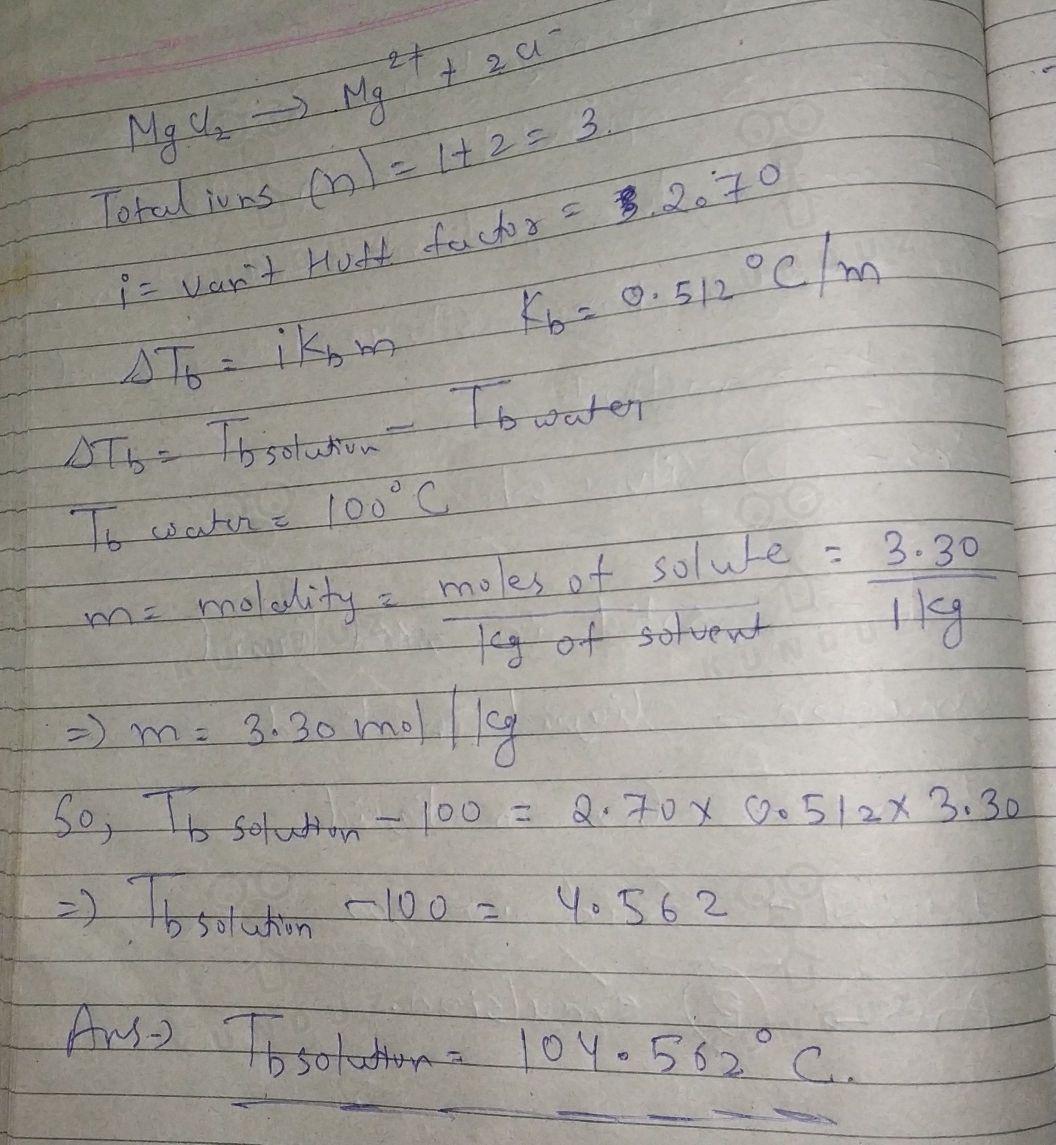 MgCl₂ → Mg²⁺ + 2Cl⁻
Total ions (n) = 1+2 = 3.
i = van't Hoff factor = 2.70
ΔT_b = i K_b m K_b = 0.512 °C/m
ΔT_b = T_b solution - T_b water
T_b water = 100°C
m = molality = moles of solute / kg of solvent = 3.30 / 1 kg
=) m = 3.30 mol / kg
So, T_b solution - 100 = 2.70 x 0.512 x 3.30
=) T_b solution - 100 = 4.562
Ans → T_b solution = 104.562°C.